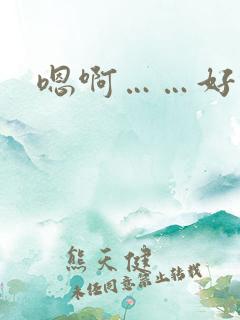 嗯啊……好
熊天健
未经同意禁止转载